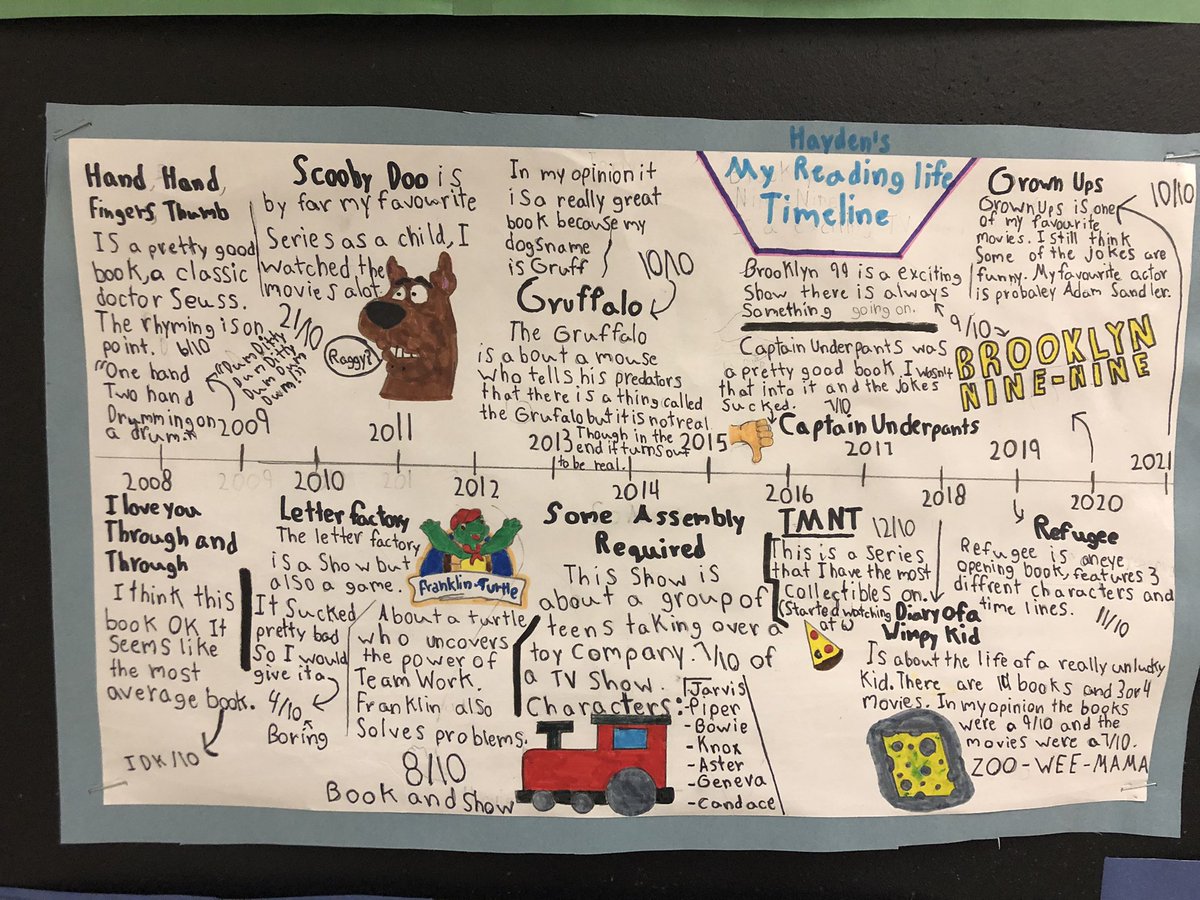 Hayden's
My Reading life
Timeline
Hand, Hand,
Fingers Thumb
Is a pretty good
book, a classic
doctor Seuss.
The rhyming is on
point. 6/10
"One hand
Two hand
Drumming on
a drum"
Dum Ditty
Dum Ditty
Dum Dum
Dum!!!
Scooby Doo is
by far my favourite
Series as a child, I
watched the
movies alot.
21/10
Raggy?
In my opinion it
is a really great
book because my
dogs name
is Gruff
10/10
Gruffalo
The Gruffalo
is about a mouse
who tells his predators
that there is a thing called
the Grufalo but it is not real
Though in the
end it turns out
to be real.
Brooklyn 99 is a exciting
Show there is always
Something going on.
9/10
BROOKLYN
NINE-NINE
Captain Underpants was
a pretty good book I wasn't
that into it and the jokes
Sucked. 7/10
Captain Underpants
Grown Ups
10/10
Grown Ups is one
of my favourite
movies. I still think
Some of the jokes are
funny. My favourite actor
is probaley Adam Sandler.
2009
2011
2013
2015
2017
2019
2021
2008
2009
2010
2011
2012
2014
2016
2018
2020
I love you
Through and
Through
I think this
book OK It
Seems like
the most
average book.
IDK/10
Letter factory
The letter factory
is a Show but
also a game.
It Sucked
pretty bad
So I would
give it a
4/10
Boring
Franklin-Turtle
About a turtle
who uncovers
the power of
Team Work.
Franklin also
Solves problems.
8/10
Book and Show
Some Assembly
Required
This Show is
about a group of
teens taking over a
toy Company. 7/10 of
a TV Show.
Characters:
Jarvis
-Piper
-Bowie
-Knox
-Aster
-Geneva
-Candace
TMNT
12/10
This is a Series
that I have the most
Collectibles on.
(Started watching
Diary of a
Wimpy Kid
Is about the life of a really unlucky
Kid. There are books and 3 or 4
movies. In my opinion the books
were a 9/10 and the
movies were a 7/10.
ZOO-WEE-MAMA
Refugee
Refugee is an eye
opening book, features 3
diffrent characters and
time lines.
11/10